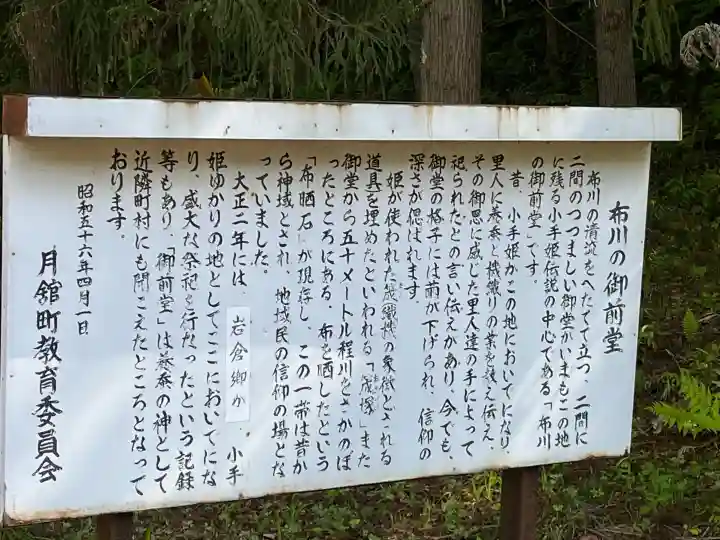 布川の御前堂
布川の清流をへだてて立つ、二間に
二間のつつましい御堂がいまもこの地
に残る小手姫伝説の中心である「布川
の御前堂」です。
昔、小手姫がこの地においでになり、
里人に養蚕と機織りの業を授え伝え、
その御恩に感じた里人達の手によって
祀られたとの言い伝えがあり、今でも、
御堂の格子には繭が下げられ、信仰の
深さが偲ばれます。
姫が使われた機織機の象徴とされる
道具を埋めたといわれる「筬塚」また
御堂から五十メートル程川をさかのぼ
ったところにある、布を晒したという
「布晒石」が現存し、この一帯は昔か
ら神域とされ、地域民の信仰の場とな
っていました。
大正二年には 岩倉卿が 、小手
姫ゆかりの地としてここにおいでにな
り、盛大な祭祀を行なったという記録
等もあり、「御前堂」は養蚕の神として
近隣町村にも聞こえたところとなって
おります。
昭和五十六年四月一日
月舘町教育委員会